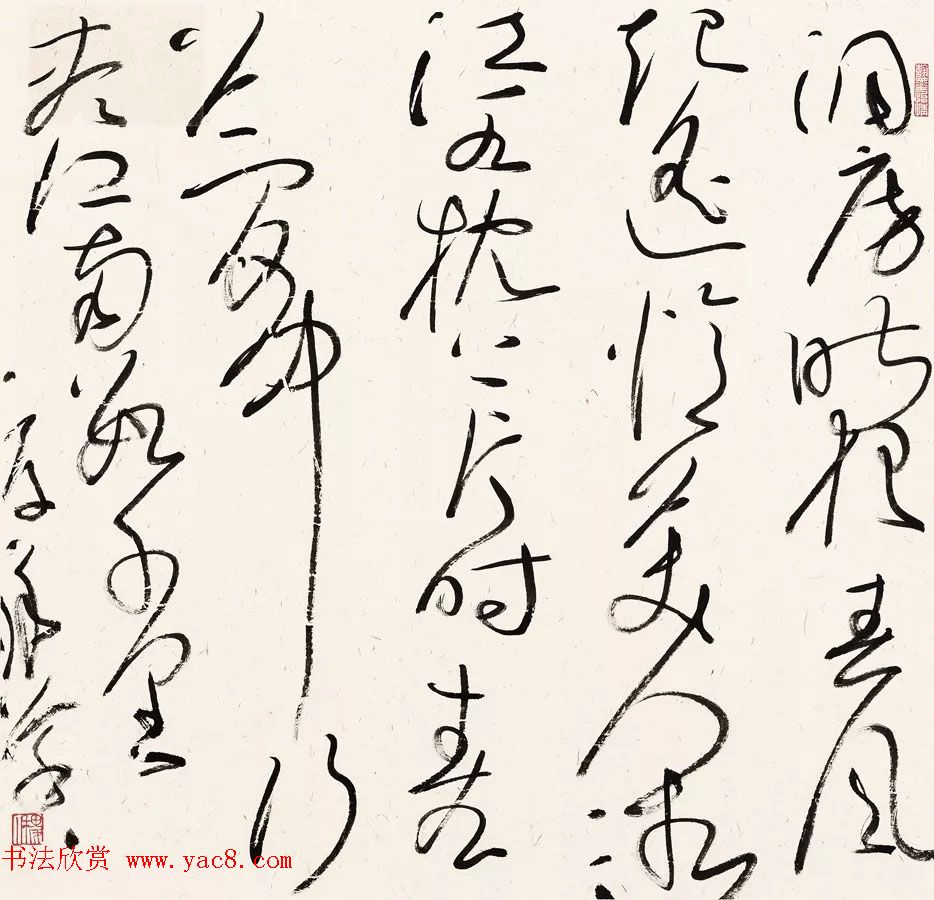 洞房昨夜春风
起遥忆美人湘
江水枕上片时春
梦中行
尽江南数千里
书法欣赏 www.yac8.com